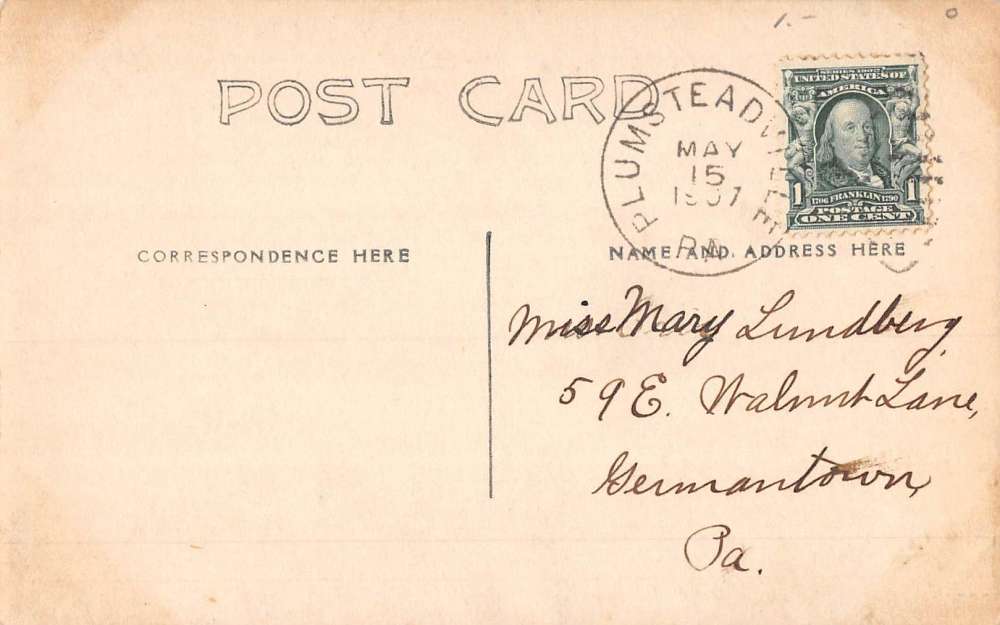 1.-
POST CARD
PLUMSTEADVILLE
MAY
15
1907
PA.
SERIES 1902
UNITED STATES OF
AMERICA
1 1
1706 FRANKLIN 1790
POSTAGE
ONE CENT
CORRESPONDENCE HERE
NAME AND ADDRESS HERE
Miss Mary Lundberg,
59 E. Walnut Lane,
Germantown,
Pa.